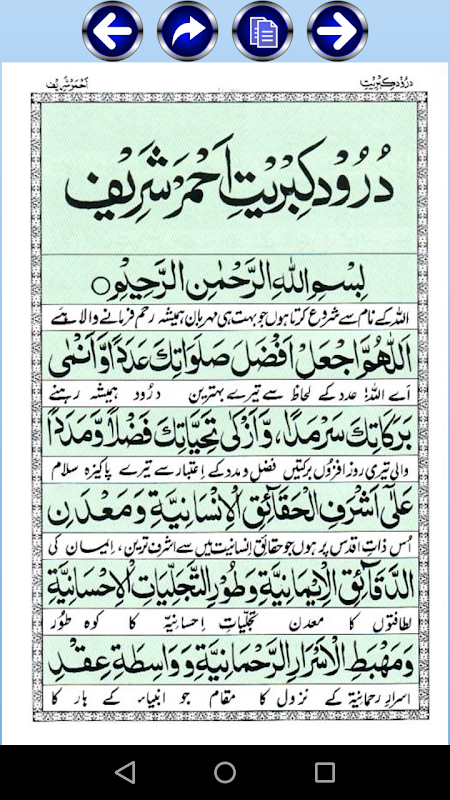 درُود کِبریتِ احمر شریف
دُرُوْد کِبْرِیْتِ اَحْمَرْ شَرِیْفْ
بِسْمِ اللهِ الرَّحْمٰنِ الرَّحِیْمِ ○
اللہ کے نام سے شروع کرتا ہوں جو بہت ہی مہربان ہمیشہ رحم فرمانے والا ہے
اَللّٰهُمَّ اجْعَلْ اَفْضَلَ صَلَوَاتِكَ عَدَدًا وَّاَنْمٰی
اَے اللہ! عدد کے لحاظ سے تیرے بہترین درُود ہمیشہ رہنے
بَرَكَاتِكَ سَرْمَدًا، وَّاَزْكٰی تَحِيَّاتِكَ فَضْلًا وَّمَدَدًا
والی تیری روز افزُوں برکتیں فضل و مدد کے اِعتبار سے تیرے پاکیزہ سلام
عَلٰٓی اَشْرَفِ الْحَقَآئِقِ الْاِنْسَانِيَّةِ وَمَعْدَنِ
اُس ذاتِ اقدس پر ہوں جو حقائقِ اِنسانیت میں سے اشرف ترین، اِیمان کی
الدَّقَآئِقِ الْاِيْمَانِيَّةِ وَطُوْرِ التَّجَلِّيَاتِ الْاِحْسَانِيَّةِ
لطافتوں کا معدن تجلّیاتِ اِحسانیّہ کا کوہ طُور
وَمَهْبَطِ الْاَسْرَارِ الرَّحْمَانِيَّةِ وَوَاسِطَةِ عِقْدِ
اسرارِ رحمانیّہ کے نزول کا مقام جو انبیاء کے ہار کا